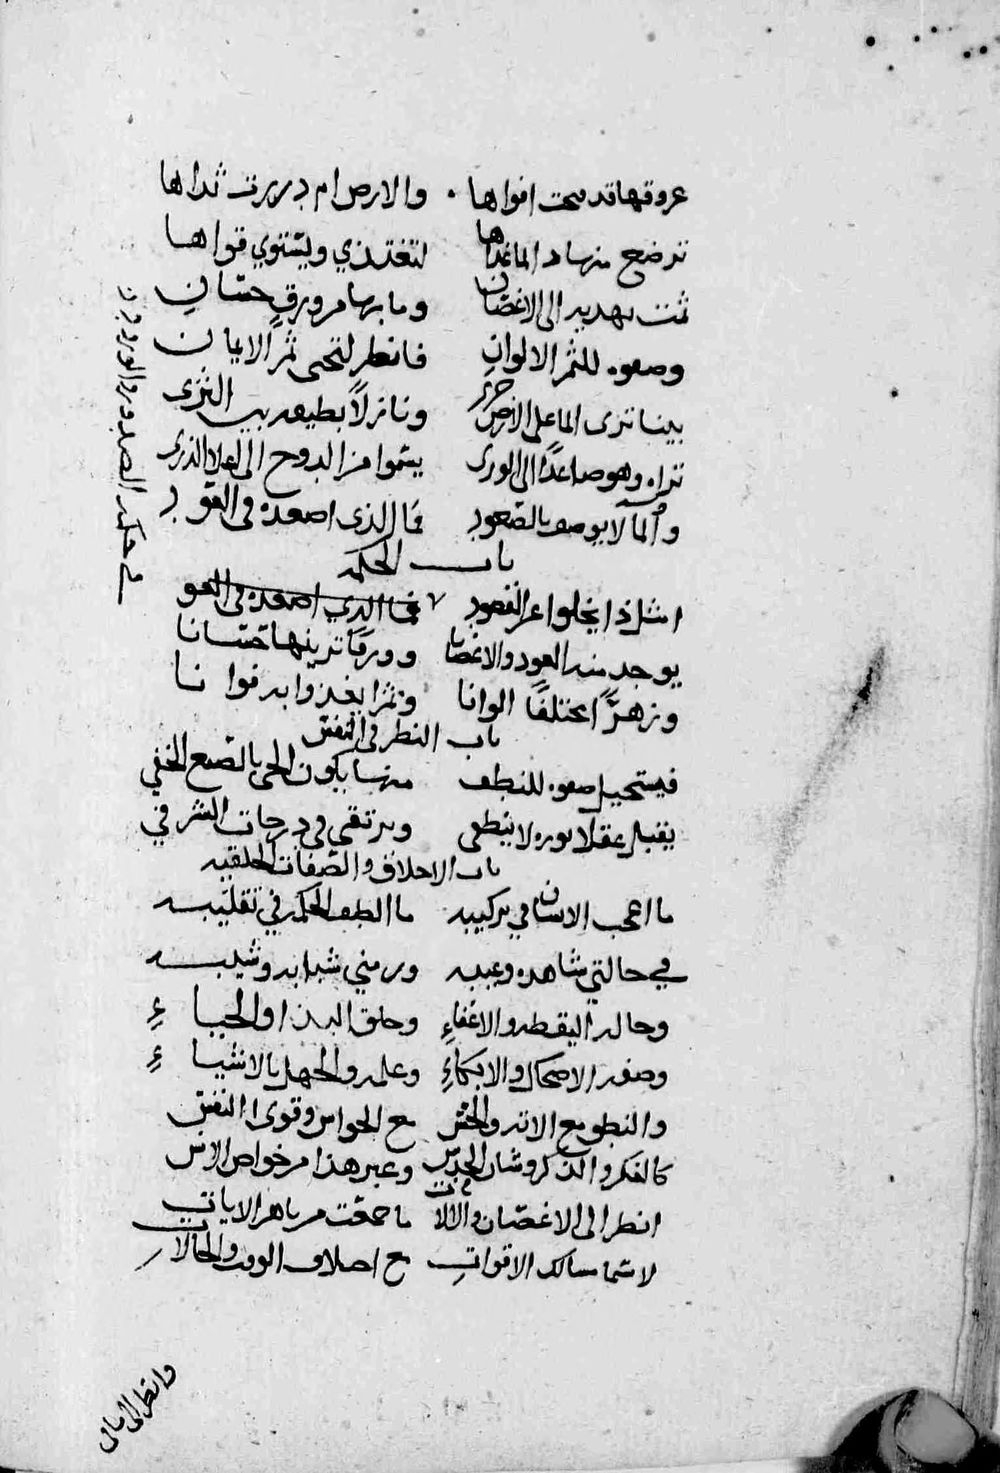 عروقها قد فتحت افواها والارض ام دررت ثداها
ترضع منها دا الما غداها لتغتذي ويستوي قواها
ثمت يهديه الى الاغصان وما بها من ورق حسان
وصفوه للثمر الالوان فانظر لتجنى ثمر الايمان
بينا ترى الما على الارض جرى ونازلا بطبعه بين الثرى
تراه وهو صاعدا الى الورى يسموا من الدوح الى اعلا الذرى
والما لا يوصف بالصعود فما الذى اصعده فى العود
باب الحكمة
يوجد منه العود والاغصانا وورقا تزينها حسانا
وزهرا مختلفا الوانا وثمرا يغذوا به
باب النظر في النفس
فيستحيل صفوه للنطف منها يكون الحي بالصنع الخفي
يقبل عقلا نوره لا ينطفى ويرتقى في درجات الشرف
باب الاخلاق والصفات الخلقيه
ما اعجب الانسان في تركيبه ما الطف الحكمة في تقليبه
في حالتي شاهده وغيبه وزمني شبابه وشيبه
وحالة اليقظه والاغفاء وخلق البذا والحياء
وصفة الاضحاك والابكاء وعلمه والجهل بالاشياء
والنطق مع الاته والحس مع الحواس وقوى النفس
كالفكر والذكر وشان الحدس وغير هذا من خواص الانس
انظر الى الاغصان والالات ما جمعت من باهر الايات
لا سيما مسالك الاقوات مع اختلاف الوقت والحالات
وانظر الى
في حكمة الصدور والورود